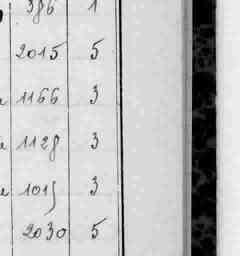 386 1
2015 5
1166 3
1128 3
1015 3
2030 5